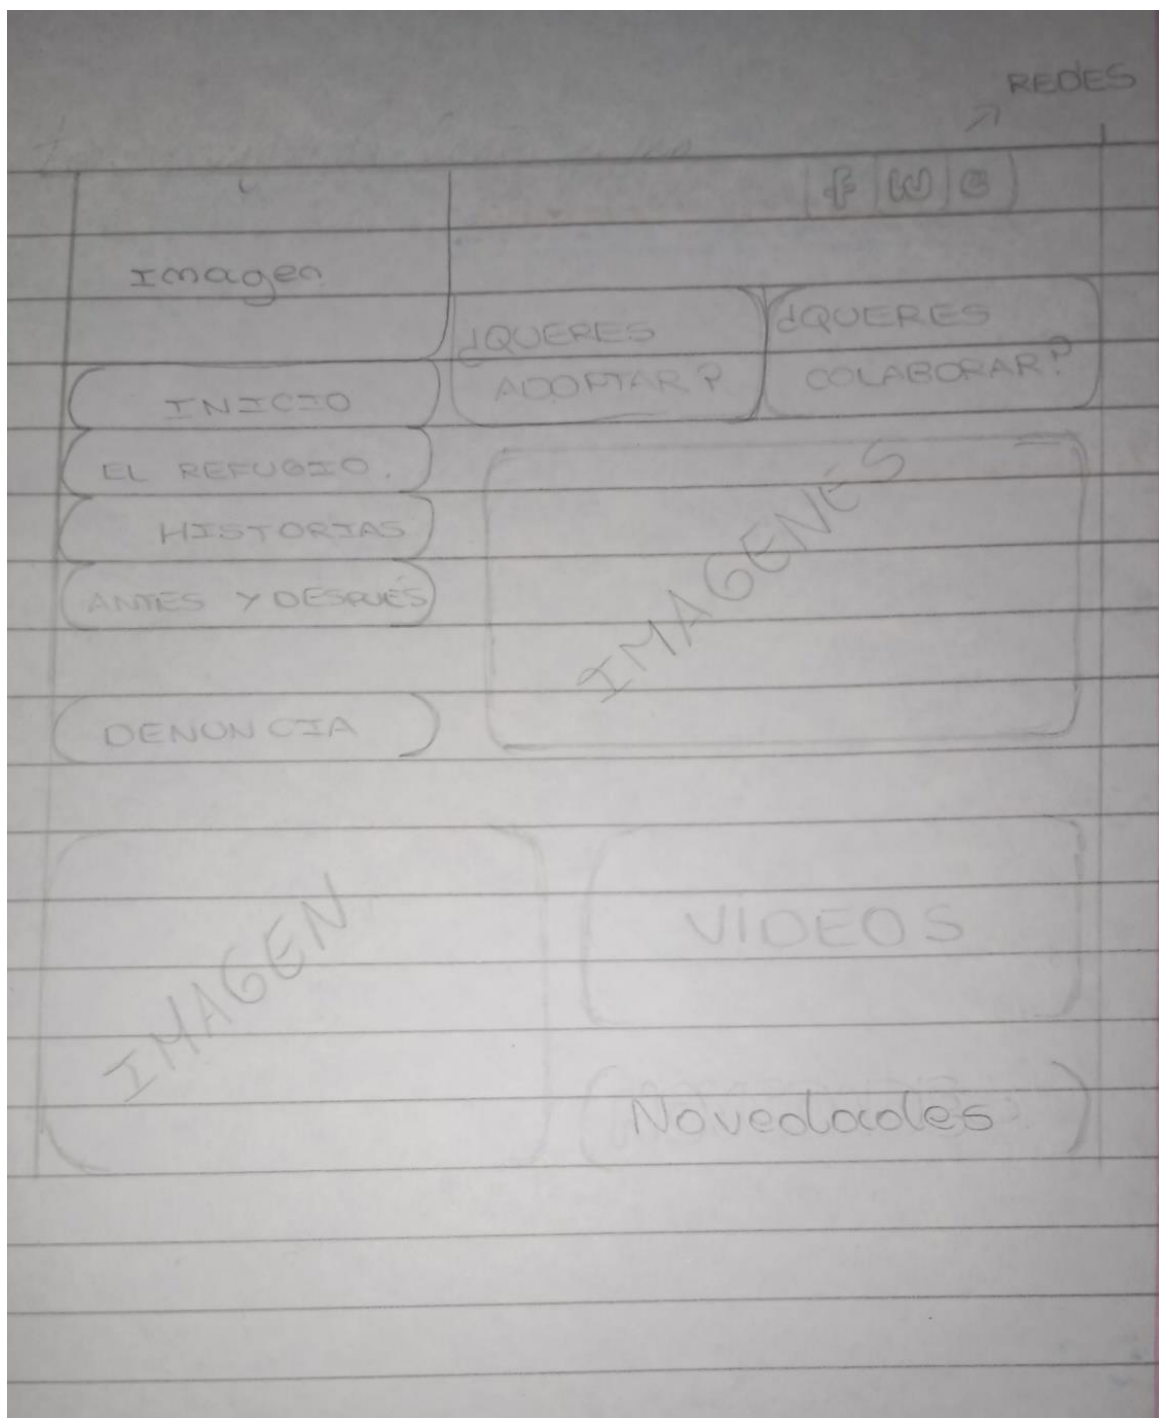 REDES
f
Imagen
¿QUERES
ADOPTAR?
¿QUERES
COLABORAR?
INICIO
EL REFUGIO.
HISTORIAS
ANTES Y DESPUÉS
DENUNCIA
IMAGENES
IMAGEN
VIDEOS
Novedades